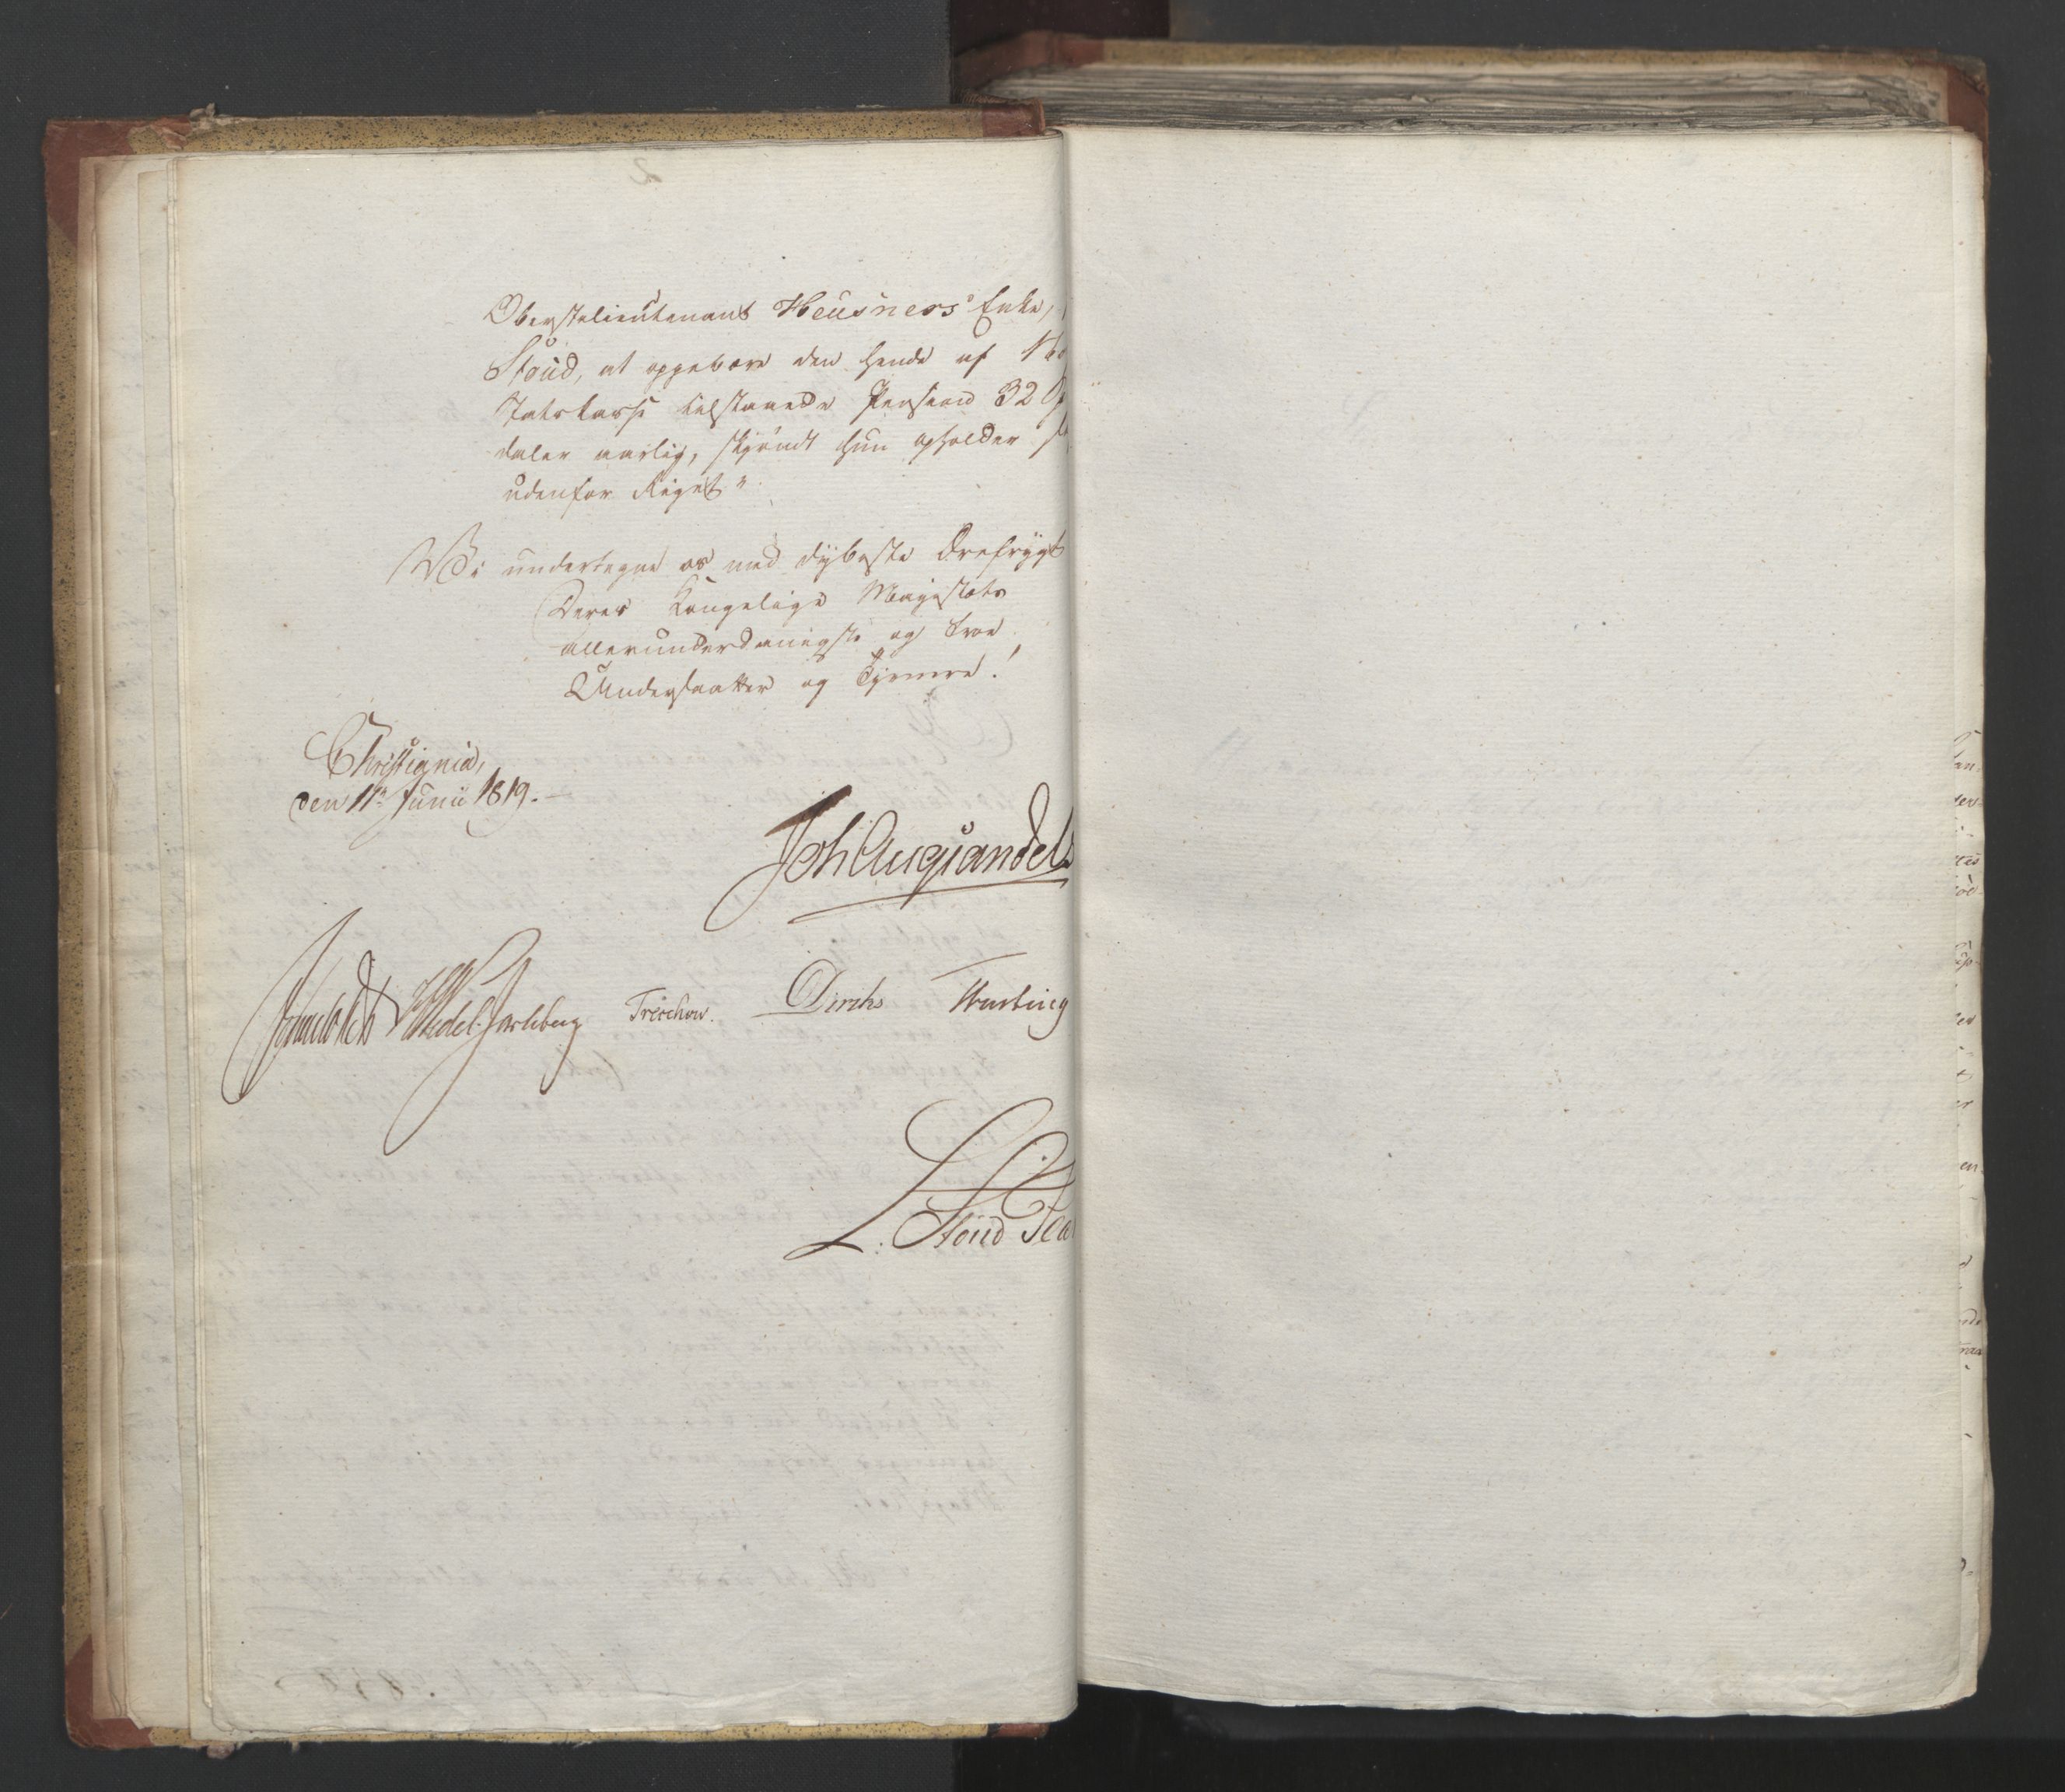 Oberstelieutenant Heusners Enke,
Stoud, at oppebære den hende af
Statskassen tilstaaede Pension 32
daler aarlig, skjøndt hun opholder
udenfor Riget".
Vi undertegne os med dybeste Ærefrygt
Deres Kongelige Majestæts
allerunderdanigste og troe
Undersaatter og Tjenere!
Christiania,
den 11te Junii 1819.
Joh Aug Sandels
Sommerhielm HWedel-Jarlsberg Treschow. Diriks Fasting
L: Stoud